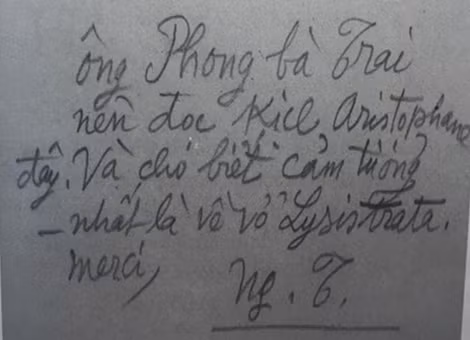 ông Phong bà Trai
nên đọc Kịch Aristophane
đây. Và cho biết cảm tưởng
– nhất là về vở Lysistrata.
merci,
Ng. T.